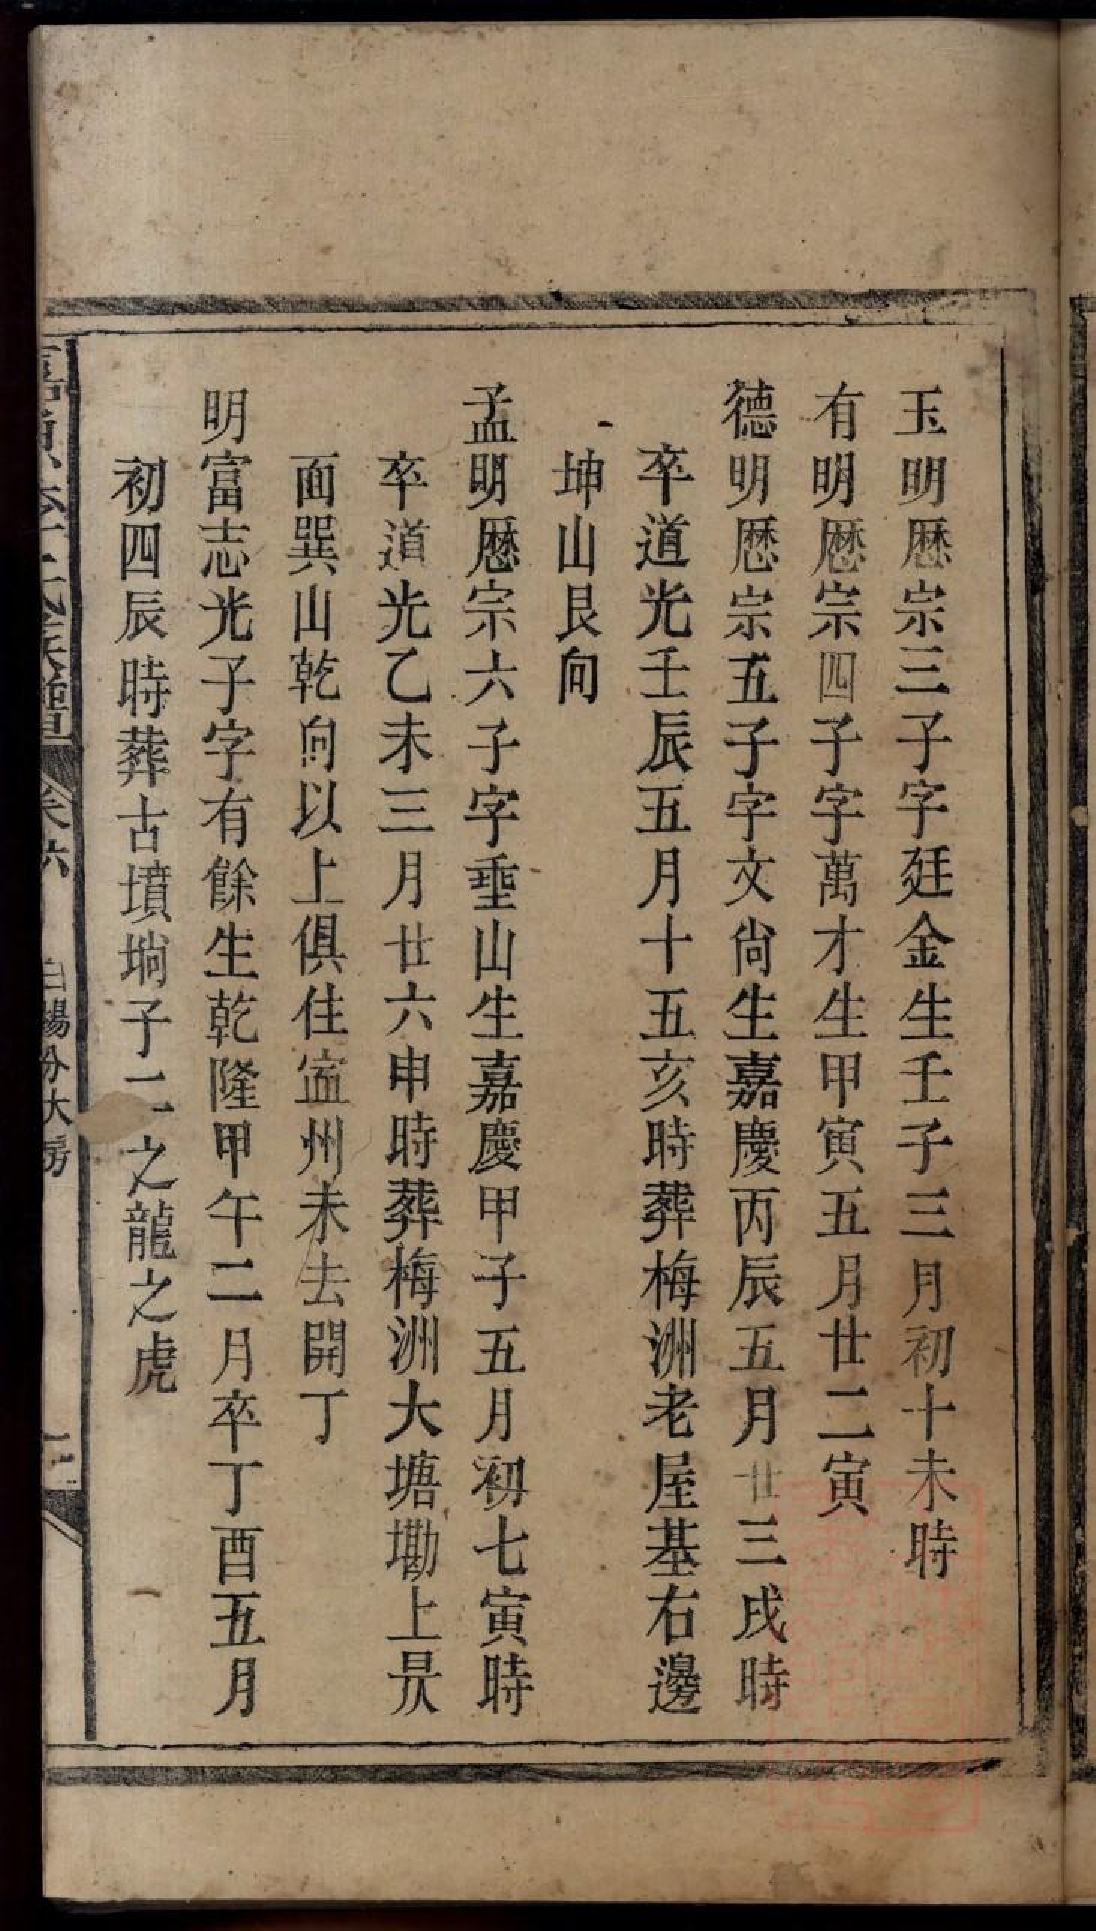 玉明厯宗三子字廷金生壬子三月初十未時
有明厯宗四子字萬才生甲寅五月廿二寅
德明厯宗五子字文尙生嘉慶丙辰五月廿三戌時
卒道光壬辰五月十五亥時葬梅洲老屋基右邊
坤山艮向
孟明厯宗六子字垂山生嘉慶甲子五月初七寅時
卒道光乙未三月廿六申時葬梅洲大塘墈上昃
面巽山乾向以上俱住寍州未去開丁
明富志光子字有餘生乾隆甲午二月卒丁酉五月
初四辰時葬古墳塆子二之龍之虎
卷六
白楊分大房